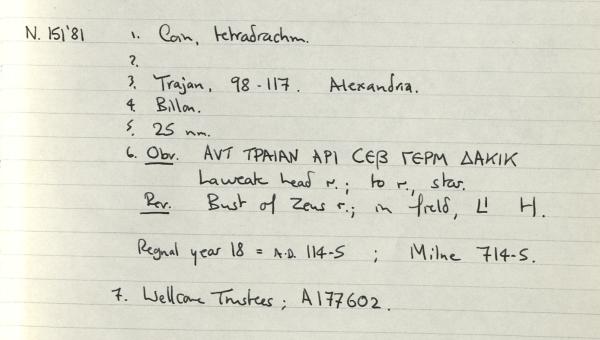 N. 151'81 1. Coin, tetradrachm.
2.
3. Trajan, 98-117. Alexandria.
4. Billon.
5. 25 mm.
6. Obv. ΑVΤ ΤΡΑΙΑΝ ΑΡΙ CЄΒ ΓЄΡΜ ΔΑΚΙΚ
Laureate head r.; to r., star.
Rev. Bust of Zeus r.; in field, L! H.
Regnal year 18 = A.D. 114-5 ; Milne 714-5.
7. Wellcome Trustees; A177602.